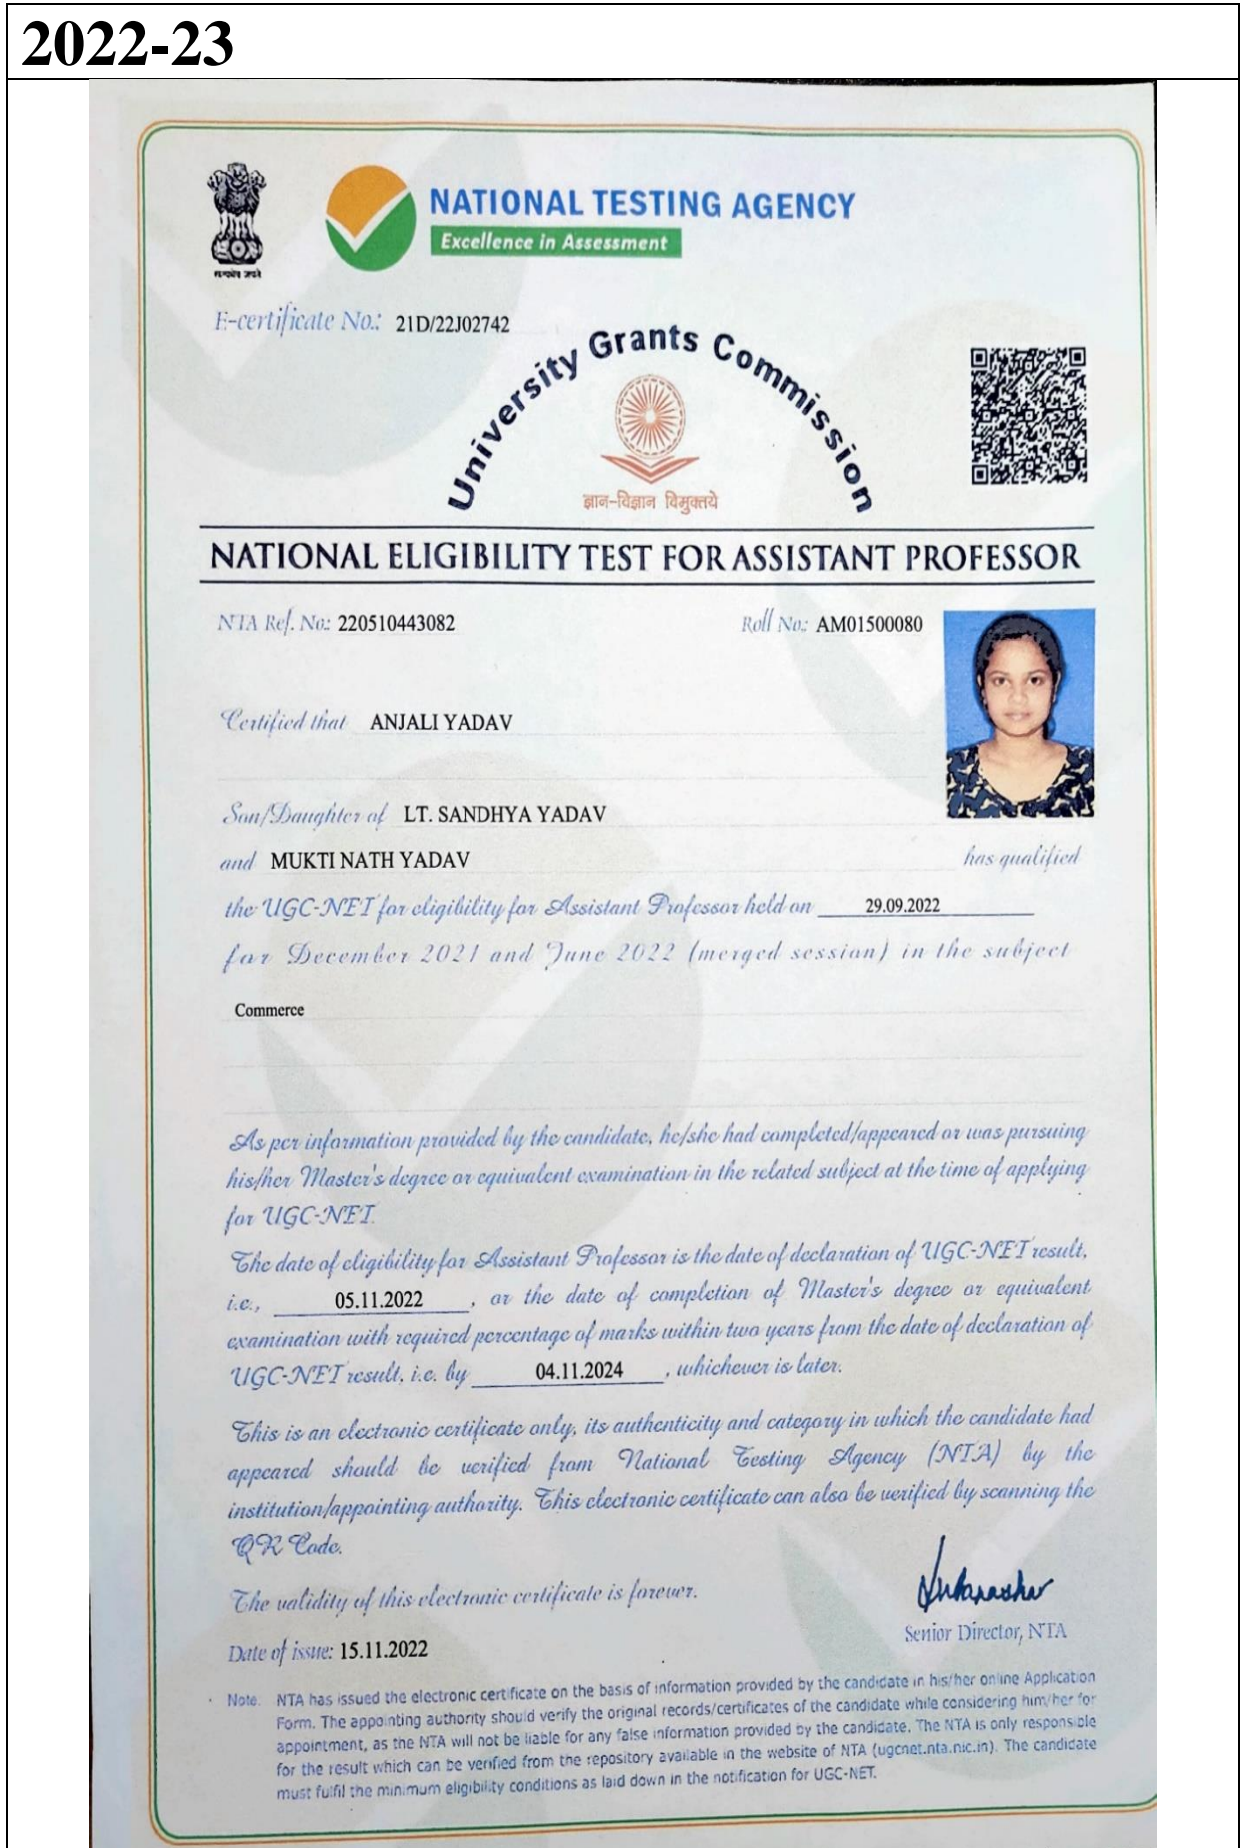 2022-23
सत्यमेव जयते
NATIONAL TESTING AGENCY
Excellence in Assessment
E-certificate No.: 21D/22J02742
University Grants Commission
ज्ञान-विज्ञान विमुक्तये
NATIONAL ELIGIBILITY TEST FOR ASSISTANT PROFESSOR
NTA Ref. No.: 220510443082 Roll No.: AM01500080
Certified that ANJALI YADAV
Son/Daughter of LT. SANDHYA YADAV
and MUKTI NATH YADAV has qualified
the UGC-NET for eligibility for Assistant Professor held on 29.09.2022
for December 2021 and June 2022 (merged session) in the subject
Commerce
As per information provided by the candidate, he/she had completed/appeared or was pursuing
his/her Master's degree or equivalent examination in the related subject at the time of applying
for UGC-NET.
The date of eligibility for Assistant Professor is the date of declaration of UGC-NET result,
i.e., 05.11.2022, or the date of completion of Master's degree or equivalent
examination with required percentage of marks within two years from the date of declaration of
UGC-NET result, i.e. by 04.11.2024, whichever is later.
This is an electronic certificate only, its authenticity and category in which the candidate had
appeared should be verified from National Testing Agency (NTA) by the
institution/appointing authority. This electronic certificate can also be verified by scanning the
QR Code.
The validity of this electronic certificate is forever.
Senior Director, NTA
Date of issue: 15.11.2022
Note: NTA has issued the electronic certificate on the basis of information provided by the candidate in his/her online Application
Form. The appointing authority should verify the original records/certificates of the candidate while considering him/her for
appointment, as the NTA will not be liable for any false information provided by the candidate. The NTA is only responsible
for the result which can be verified from the repository available in the website of NTA (ugcnet.nta.nic.in). The candidate
must fulfil the minimum eligibility conditions as laid down in the notification for UGC-NET.